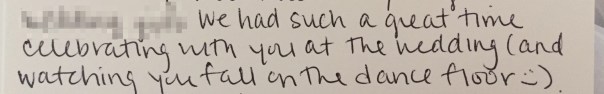 We had such a great time
celebrating with you at the wedding (and
watching you fall on the dance floor :)